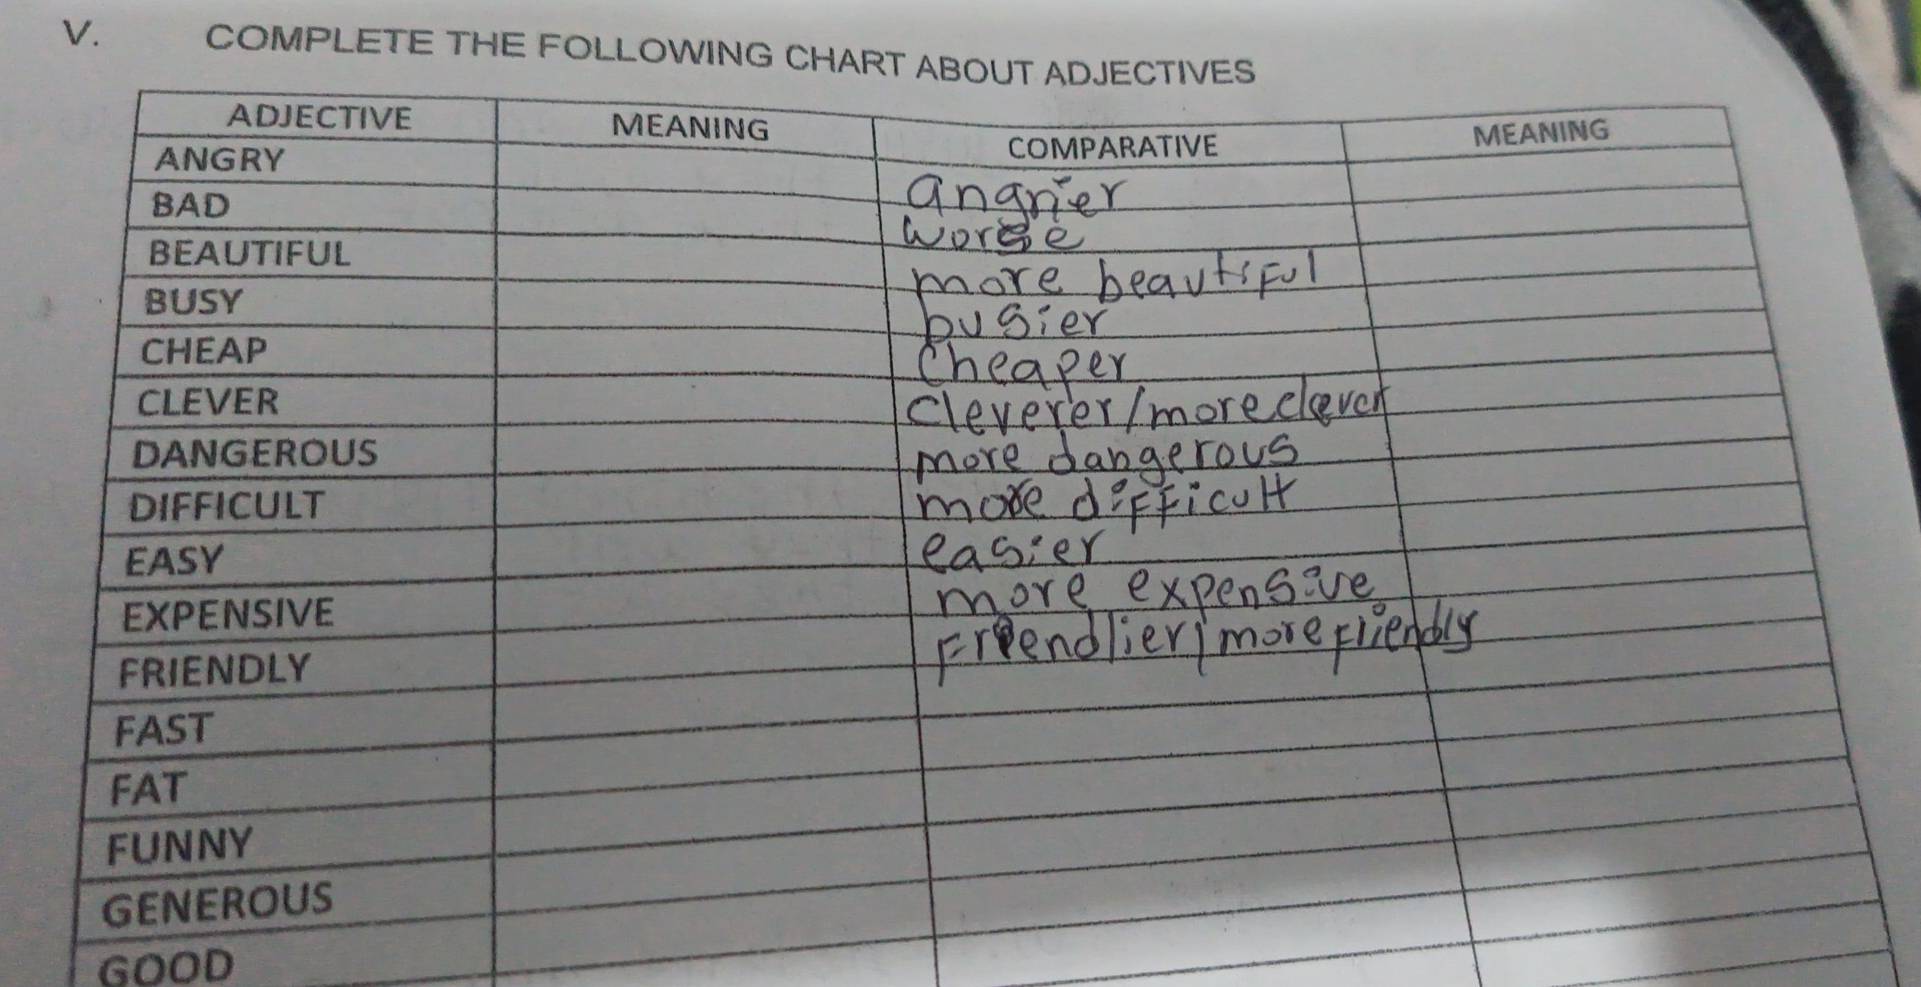 V. COMPLETE THE FOLLOWING CHART ABOUT ADJECTIVES
ADJECTIVE MEANING COMPARATIVE MEANING
ANGRY angrier
BAD worse
BEAUTIFUL more beautiful
BUSY busier
CHEAP cheaper
CLEVER cleverer/more clever
DANGEROUS more dangerous
DIFFICULT more difficult
EASY easier
EXPENSIVE more expensive
FRIENDLY Friendlier/more friendly
FAST
FAT
FUNNY
GENEROUS
GOOD